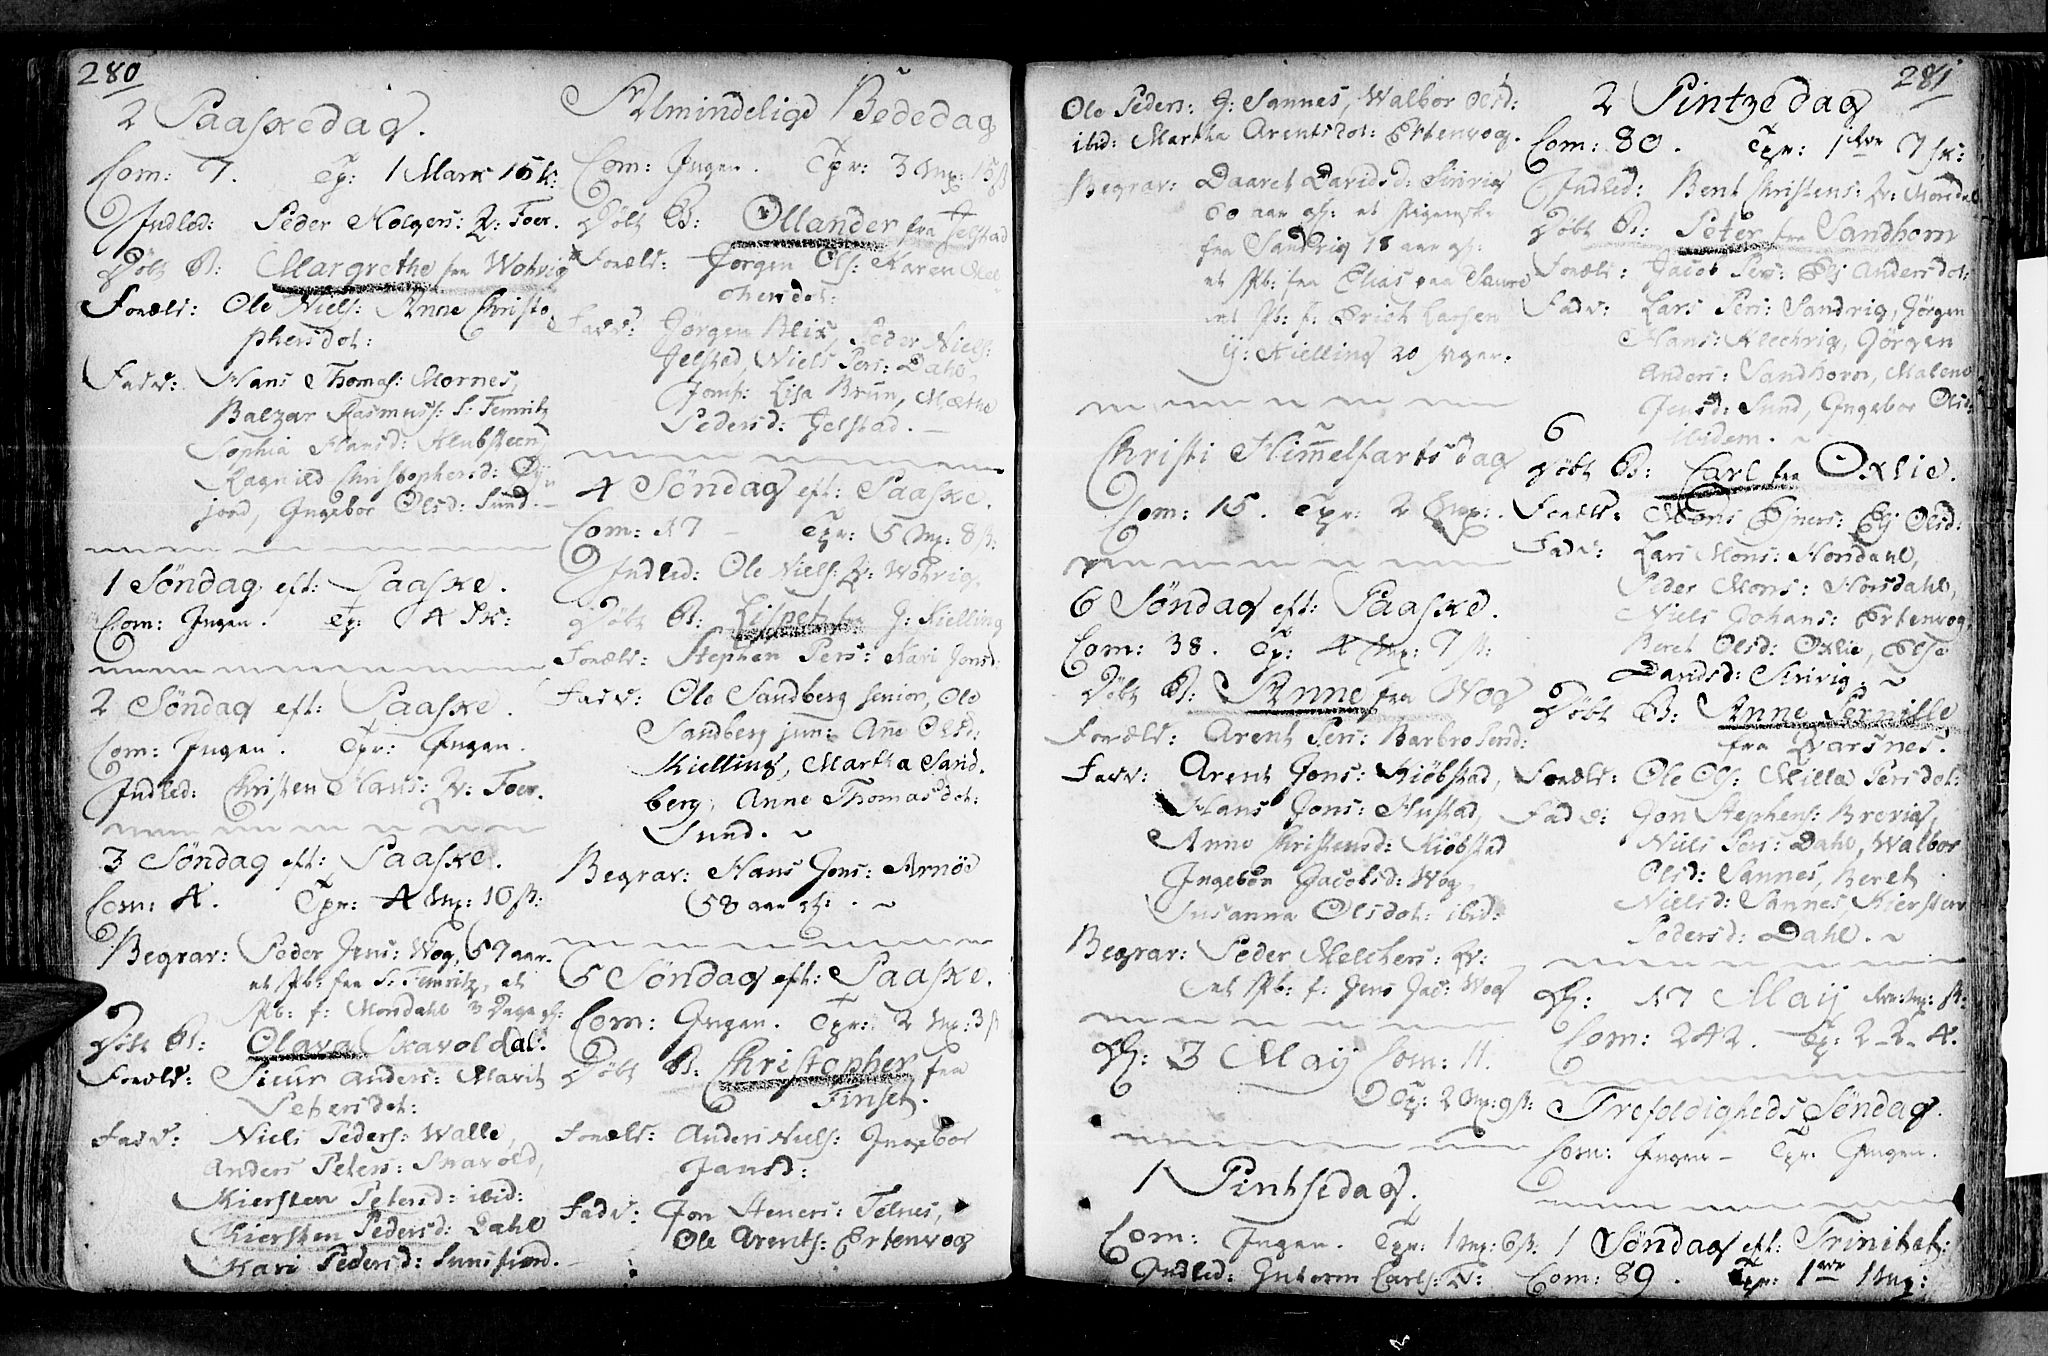 280
2 Paaskedag.
Com: 7. Tp: 1 Mark 15 s:
Indled: Peder Holgers: Q: Foer.
Døbt B: Margrethe fra Wohrig
Foræld: Ole Niels: Anne Christo
phersdot:
Fadd: Hans Thomas: Mornes,
Balzar Rasmuss: S: Temritz
Sophia Hansd: Klubsteen
Ragnild Christophersd:
jord, Ingebor Olsd: Sund.
1 Søndag eft: Paaske.
Com: Ingen. Tp: 4 Sk:
2 Søndag eft: Paaske.
Com: Ingen. Tpr: Ingen.
Indled: Christen Hans: Q: Foer.
3 Søndag eft: Paaske.
Com: 4. Tpr: 4 Mp: 10 ß:
Begrav: Peder Jens: Wog, 57 aar.
et Pb: fra S: Temritz, et
Pb: f: Mordahl 3 Dage gl:
Døbt B: Olava Skavoldal:
Foræld: Sivur Anders: Marit
Petersdot:
Fadd: Niels Peders: Walle,
Anders Peters: Skavold,
Kiersten Petersd: ibid:
Kiersten Pedersd: Dahl
Kari Pedersd: Sunsfiord.
Almindelige Bededag
Com: Ingen. Tpr: 3 Mp: 15 ß
Døbt B: Ollander fra Jelstad
Foræld: Jørgen Ols: Karen Mel
chersdot:
Fadd: Jørgen Blix, Peder Niels:
Jelstad, Niels Pers: Dahl,
Jomf: Lisa Brun, Mæthe
Pedersd: Jelstad.
4 Søndag eft: Paaske.
Com: 17 Tpr: 5 Mp: 8 ß:
Indled: Ole Niels: Q: Wohrig.
Døbt B: Lispeth fra J: Kielling
Foræld: Stephen Pers: Kari Jonsd:
Fadd: Ole Sandberg senior, Ole
Sandberg jun: Ane Olsd:
Kielling, Martha Sand.
berg, Anne Thomasdot:
Sund.
Begrav: Hans Jons: Arnøe
58 aar gl:.
5 Søndag eft: Paaske.
Com: Ingen. Tpr: 2 Mp: 3 ß
Døbt B: Christopher fra
Finset.
Foræld: Anders Niels: Ingebor
Jansd:
Fadd: Jon Steners: Telnes,
Ole Arents: Ertenvog
281
Ole Peders: J: Sannes, Walbor Olsd:
ibid: Martha Arentsdot: Ertenvog.
Begrav: Daaret Davidsd: Sinvig
60 aar gl: et Pigemsk:
fra Sandvig 18 aar gl:
et Pb: fra Elias paa
et Pb: f: Erich Larsen
Y: Kielling 20 uger.
Christi Himmelfarts dag
Com: 15. Tpr: 2 Mp:
6 Søndag eft: Paaske.
Com: 38. Tp: 4 Mp: 7 ß:
Døbt B: Anne fra Wog
Foræld: Arent Pers: Barbro Send:
Fadd: Arent Jons: Kiøbstad,
Hans Jons: Hustad,
Anne Christensd: Kiøbstad
Ingebor Jacobsd: Wog,
Susanna Olsdot: ibid:
Begrav: Peder Melchers: Qv:
et Pb: f: Jens Jac: Wog
D: 3 Maij Com: 11.
Tp: 2 Mp: 9 ß:
1 Pintsedag.
Com: Ingen. Tpr: 1 Mp: 6 ß:
Indled: Guterm Carls: Q:
2 Pintzedag
Com: 80. Tpr: 1 7 sk:
Indled: Bent Christens: Q: Mordal
Døbt B: Peter fra Sandhorn
Foræld: Jacob Pers: Elj Andersdot:
Fadd: Lars Pers: Sandvig, Jørgen
Hans: Klechvig, Jørgen
Anders: Sandhorn, Malene
Jensd: Sund, Ingebor Olsd:
ibidem.
Døbt B: Carl fra Oxlie.
Foræld: Mons Ejners: Elj Olsd:
Fadd: Lars Mons: Nordahl,
Peder Mons: Nordahl,
Niels Johans: Ertenvog,
Beret Olsd: Oxlie, Else
Davidsd: Sinvig.
Døbt B: Anne Pernille
fra Qvarsnes.
Foræld: Ole Ols: Milla Persdot:
Fadd: Jon Stephens: Brevig,
Niels Pers: Dahl, Walbor
Olsd: Sannes, Beret
Nielsd: Sannes, Kiersten
Pedersd: Dahl.
D: 17 Maij
Com: 242. Tp: 2-2-4.
Trefoldigheds Søndag.
Com: Ingen - Tpr: Ingen.
1 Søndag eft: Trinitat:
Com: 89. Tpr: 1 1 Mp: